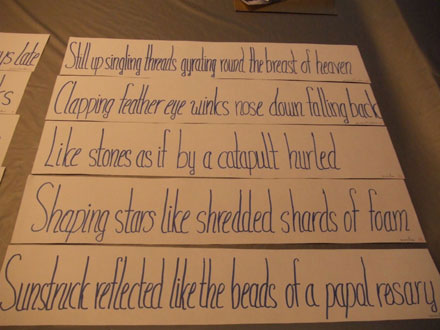 ys late
Still up singling threads gyrating round the breast of heaven
Clapping feather eye winks nose down falling back
Like stones as if by a catapult hurled
Shaping stars like shredded shards of foam
Sunstruck reflected like the beads of a papal rosary